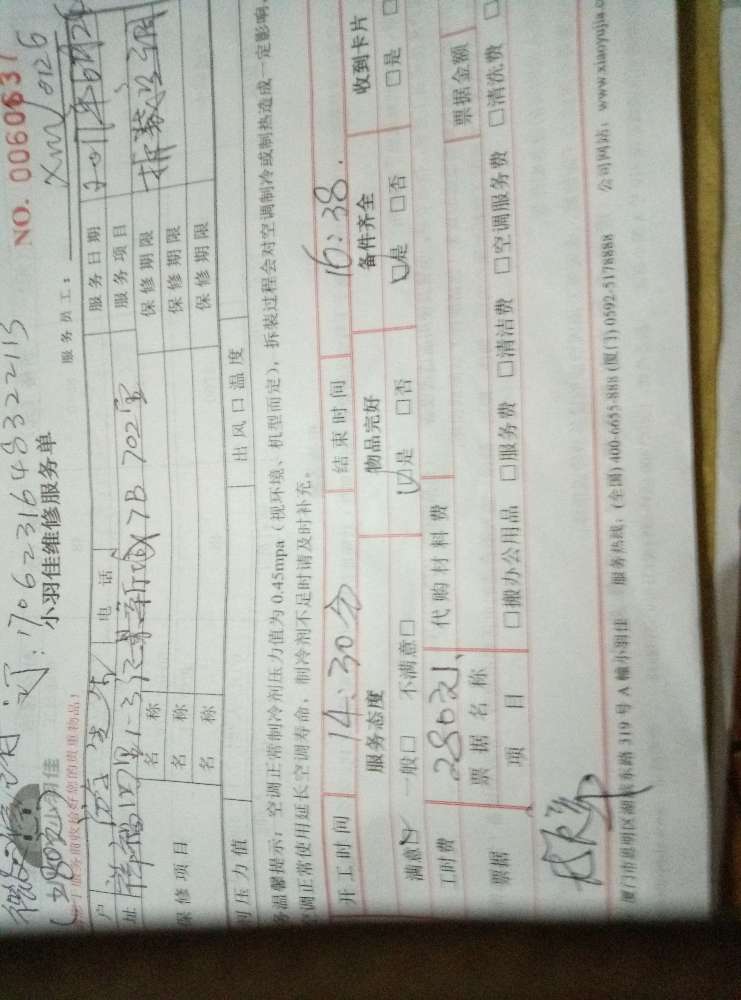 170623164832211S
NO. 0060637
小羽佳维修服务单
服务员工: XM0126
于服务前收检好您的贵重物品!
户
电 话
服务日期
址
7B 702室
服务项目 拆装空调
保修项目
名 称
保修期限
名 称
保修期限
名 称
保修期限
剂压力值
出风口温度
务温馨提示: 空调正常制冷剂压力值为 0.45mpa (视环境、机型而定), 拆装过程会对空调制冷或制热造成一定影响,
空调正常使用延长空调寿命, 制冷剂不足时请及时补充。
开工时间 14:30分 结束时间 16:38.
服务态度 物品完好 备件齐全 收到卡片
满意☑ 一般□ 不满意□ ☑是 □否 ☑是 □否 □是 □
工时费 280元 代购材料费
票据 票据名称 票据金额
项 目 □搬办公用品 □服务费 □清洁费 □空调服务费 □清洗费 □
厦门市思明区湖滨东路 319 号 A 幢小羽佳 服务热线: (全国) 400-6655-888 (厦门) 0592-5178888 公司网站: www.xiaoyujia.c